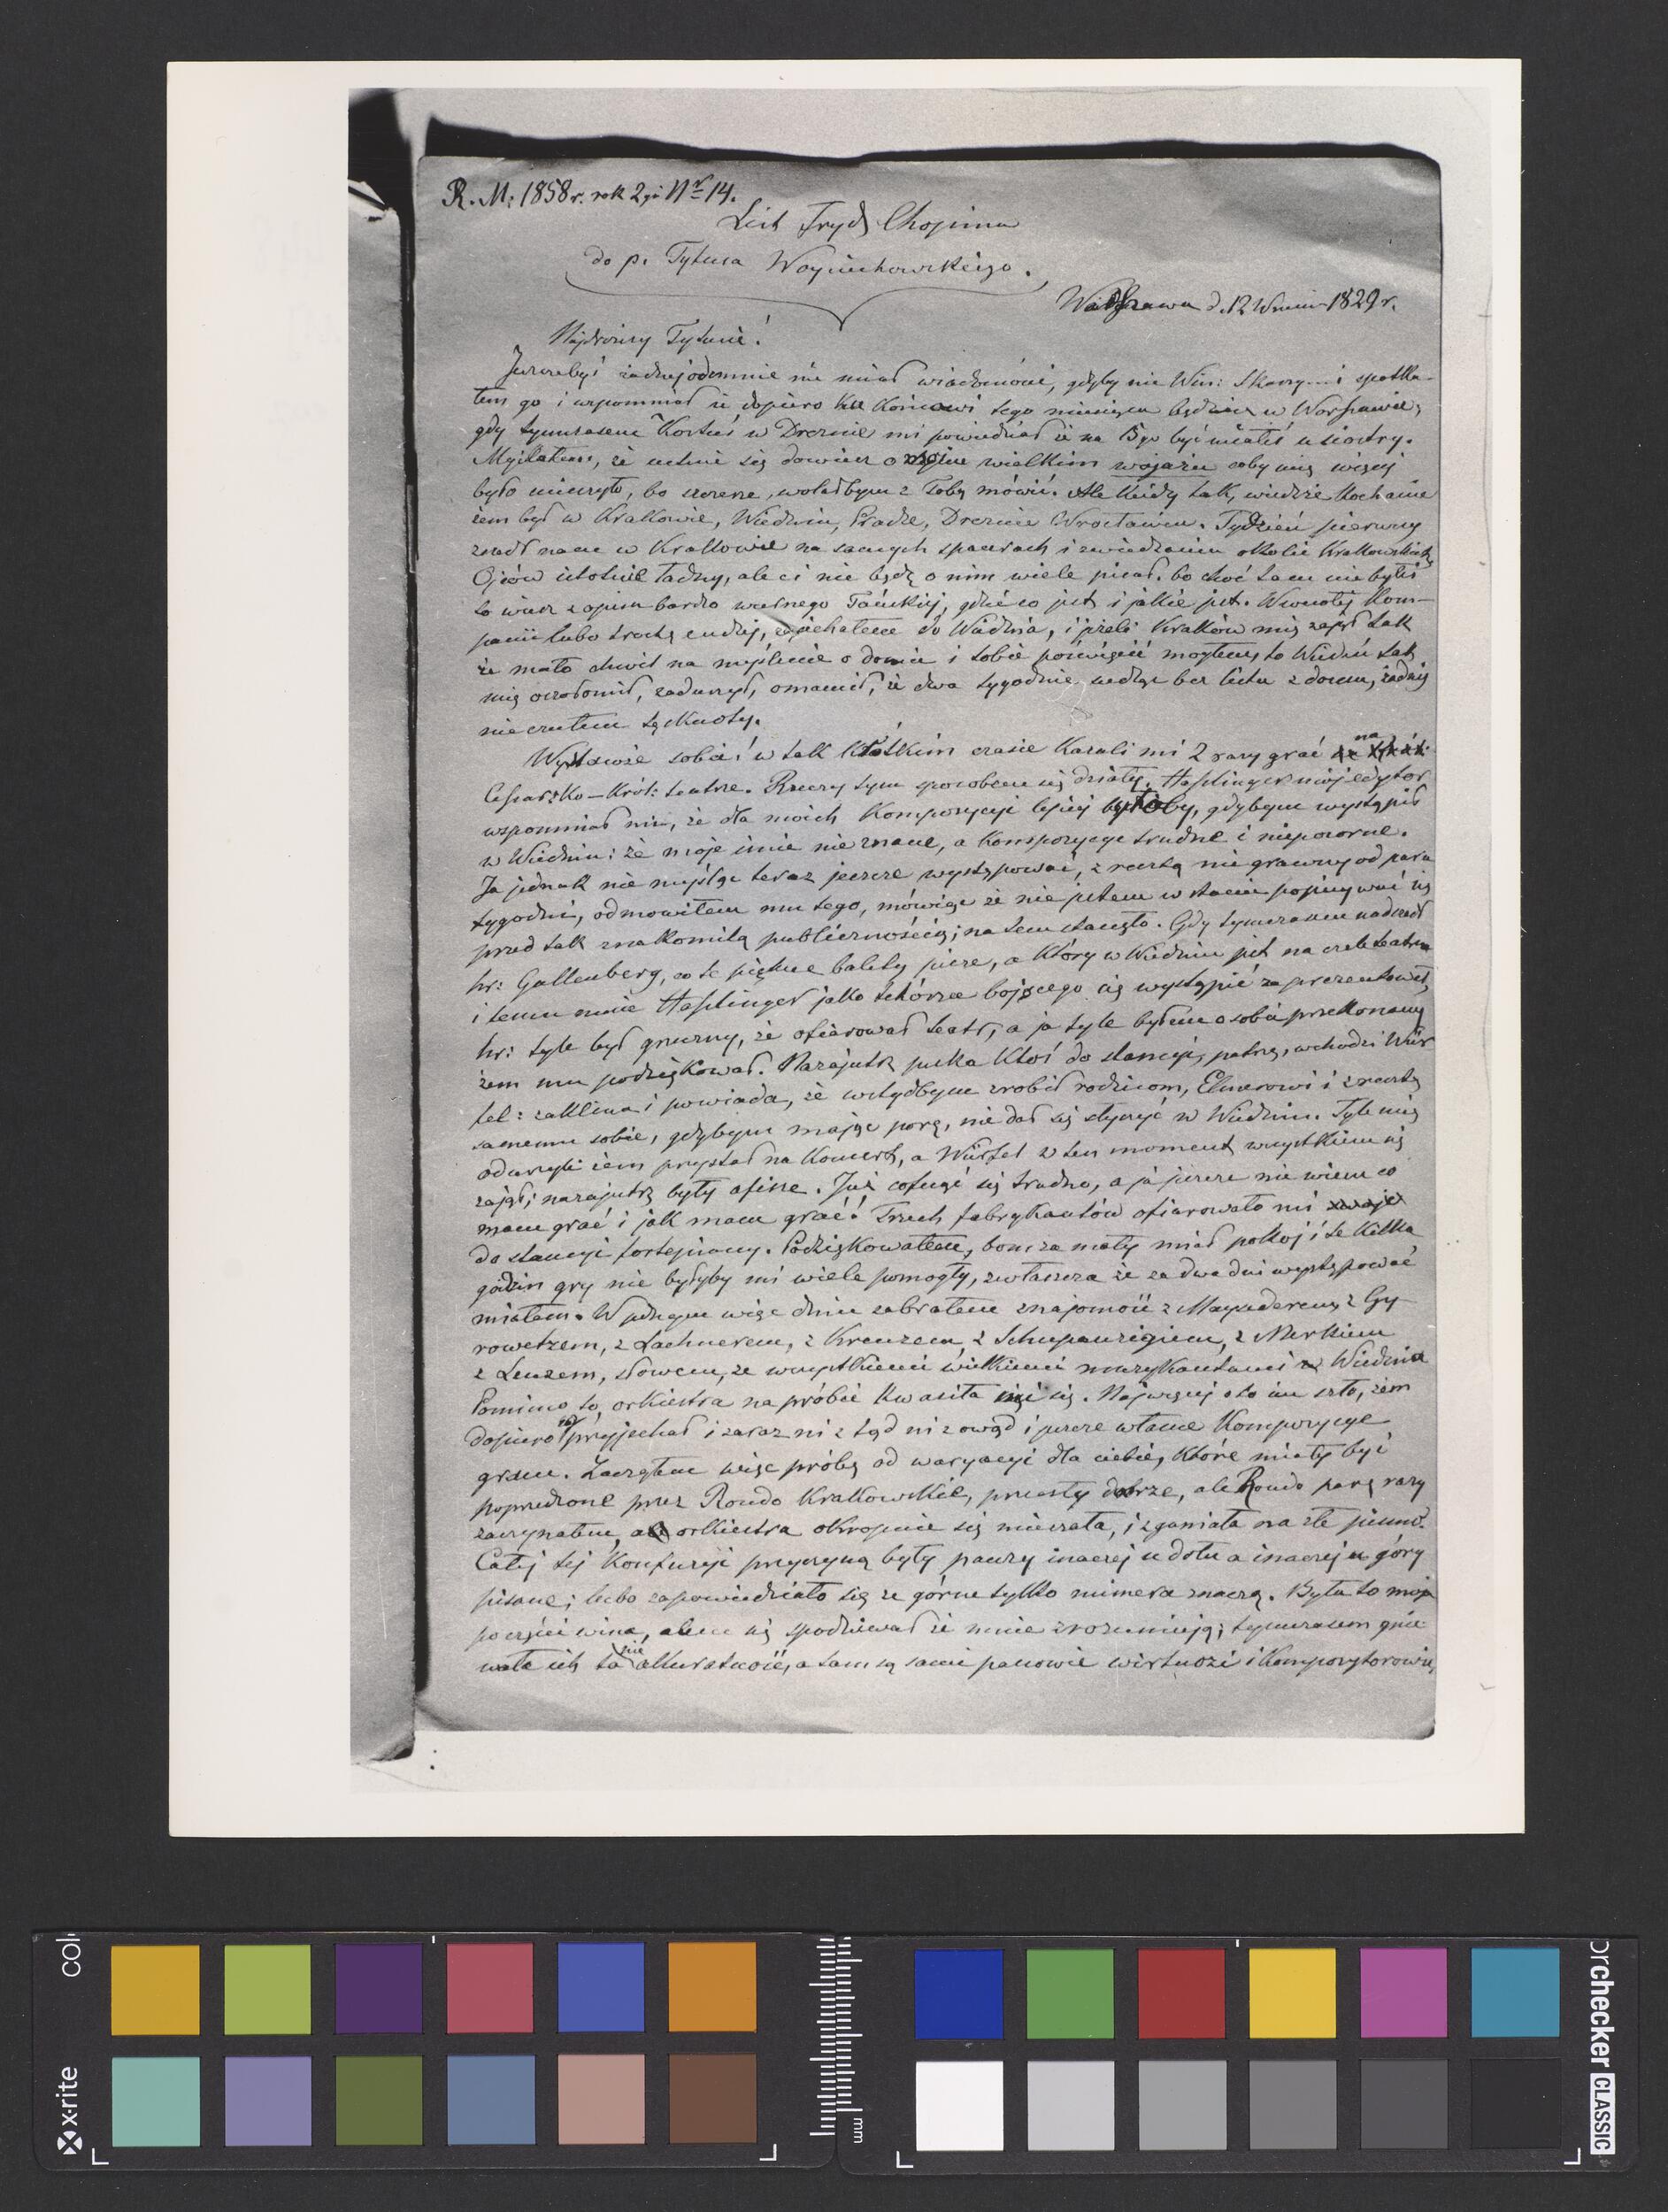 R. M: 1858 r. rok 2gi Nr 14.
List Fryd Chopina
do p. Tytusa Woyciechowskiego.
Warszawa d. 12 Wrześn 1829 r.
Najdroższy Tytusie!
Jeszczebyś żadnej odemnie nie miał wiadomości, gdyby nie Winc: Skarzy...i spotka-
łem go i wspomniał że dopiero ku końcowi tego miesiąca będziesz w Warszawie,
gdy tymczasem Kostuś w Dreznie mi powiedział że na 15go być miałeś u siostry.
Myślałem, że ustnie się dowiesz o mojm wielkim wojażu coby mię więcej
było cieszyło, bo szczerze, wolałbym z Tobą mówić. Ale kiedy tak, wiedzże kochanie
żem był w Krakowie, Wiedniu, Pradze, Dreznie Wrocławiu. Tydzień pierwszy
zszedł nam w Krakowie na samych spacerach i zwiedzaniu okolic Krakowskich
Ojców istotnie ładny, ale ci nie będę o nim wiele pisał, bo choć tam nie byłeś
to wiesz z opisu bardzo wiernego Tańskiej, gdzie co jest i jakie jest. W wesołej kom-
panii lubo trochę cudzej, zajechałem do Wiednia, i jżeli Kraków mię zajął tak
że mało chwil na myślenie o domu i tobie poświęcić mogłem, to Wiedeń tak
mię oszołomił, zadurzył, omamił, że dwa tygodnie siedząc bez listu z domu, żadnej
nie czułem tęsknoty.
Wystawże sobie! w tak krótkim czasie kazali mi 2 razy grać na
Cesarsko-Król: teatrze. Rzeczy tym sposobem się działy, Haslinger mój edytor
wspomniał mi, że dla moich kompozycyi lepiej byłoby, gdybym wystąpił
w Wiedniu: że moje imie nie znane, a kompozycye trudne i niepozorne.
Ja jednak nie myśląc teraz jeszcze występować, z resztą nie grawszy od paru
tygodni, odmówiłem mu tego, mówiąc że nie jestem w stanie popisywać się
przed tak znakomitą publicznością; na tem stanęło. Gdy tymczasem nadszedł
hr: Gallenberg, co te piękne balety pisze, a który w Wiedniu jest na czele teatru
i temu mnie Haslinger jako tchórza bojącego się wystąpić zaprezentował,
hr: tyle był grzeczny, że ofiarował teatr, a ja tyle byłem o sobie przekonany
żem mu podziękował. Nazajutrz puka ktoś do stancyi, patrzę, wchodzi Wür
fel: zaklina i powiada, że wstydbym zrobił rodzicom, Elsnerowi i z resztą
samemu sobie, gdybym mając porę, nie dał się słyszyć w Wiedniu. Tyle mię
odurzyli żem przystał na koncert, a Würfel w ten moment wszystkiem się
zajął; nazajutrz były afisze. Już cofnąć się trudno, a ja jeszcze nie wiem co
mam grać i jak mam grać! Trzech fabrykantów ofiarowało mi swoje
do stancyi fortepiany. Podziękowałem, bom za mały miał pokój i te kilka
godzin gry nie byłyby mi wiele pomogły, zwłaszcza że za dwa dni występować
miałem. W jednym więc dniu zabrałem znajomość z Mayederem, z Gy-
rowetzem, z Lachnerem, z Kreuzem, z Schupanzigiem, z Merkiem
z Lewzem, słowem, ze wszystkiemi wielkiemi muzykantami z Wiednia
Pomimo to, orkiestra na próbie kwasiła się. Najwięcej o to im szło, żem
dopiero co przyjechał i zaraz ni z tąd ni z owąd i jeszcze własne kompozycye
gram. Zacząłem więc próbę od waryacyi dla ciebie, które miały być
poprzedzone przez Rondo Krakowskie, przeszły dobrze, ale Rondo parę razy
zaczynałem, a orkiestra okropnie się mieszała, i zganiała na złe pismo.
Całej tej konfuzyi przyczyną były pauzy inaczej u dołu a inaczej u góry
pisane; lubo zapowiedziało się ze górne tylko numera znaczą. Była to moja
po części wina, alem się spodziewał że mnie zrozumieją; tymczasem gnie
wała ich ta nie akuratność, a tam są sami panowie wirtuozi i kompozytorowie,
x-rite
colorchecker CLASSIC
mm